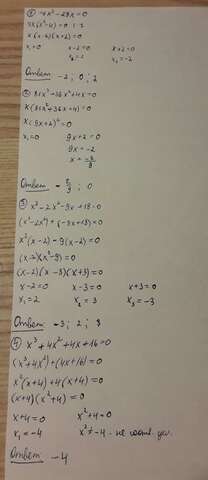 x(x-2)(x+2)=0
x₁=0 x-2=0 x+2=0
x₂=2 x₃=-2
Ответ: -2; 0; 2
② 81x³+36x²+4x=0
x(81x²+36x+4)=0
x(9x+2)²=0
x₁=0 9x+2=0
9x=-2
x=-2/9
Ответ: -2/9; 0
③ x³-2x²-9x+18=0
(x³-2x²)+(-9x+18)=0
x²(x-2)-9(x-2)=0
(x-2)(x²-9)=0
(x-2)(x-3)(x+3)=0
x-2=0 x-3=0 x+3=0
x₁=2 x₂=3 x₃=-3
Ответ: -3; 2; 3
④ x³+4x²+4x+16=0
(x³+4x²)+(4x+16)=0
x²(x+4)+4(x+4)=0
(x+4)(x²+4)=0
x+4=0 x²+4=0
x₁=-4 x²≠-4 - не
Ответ: -4